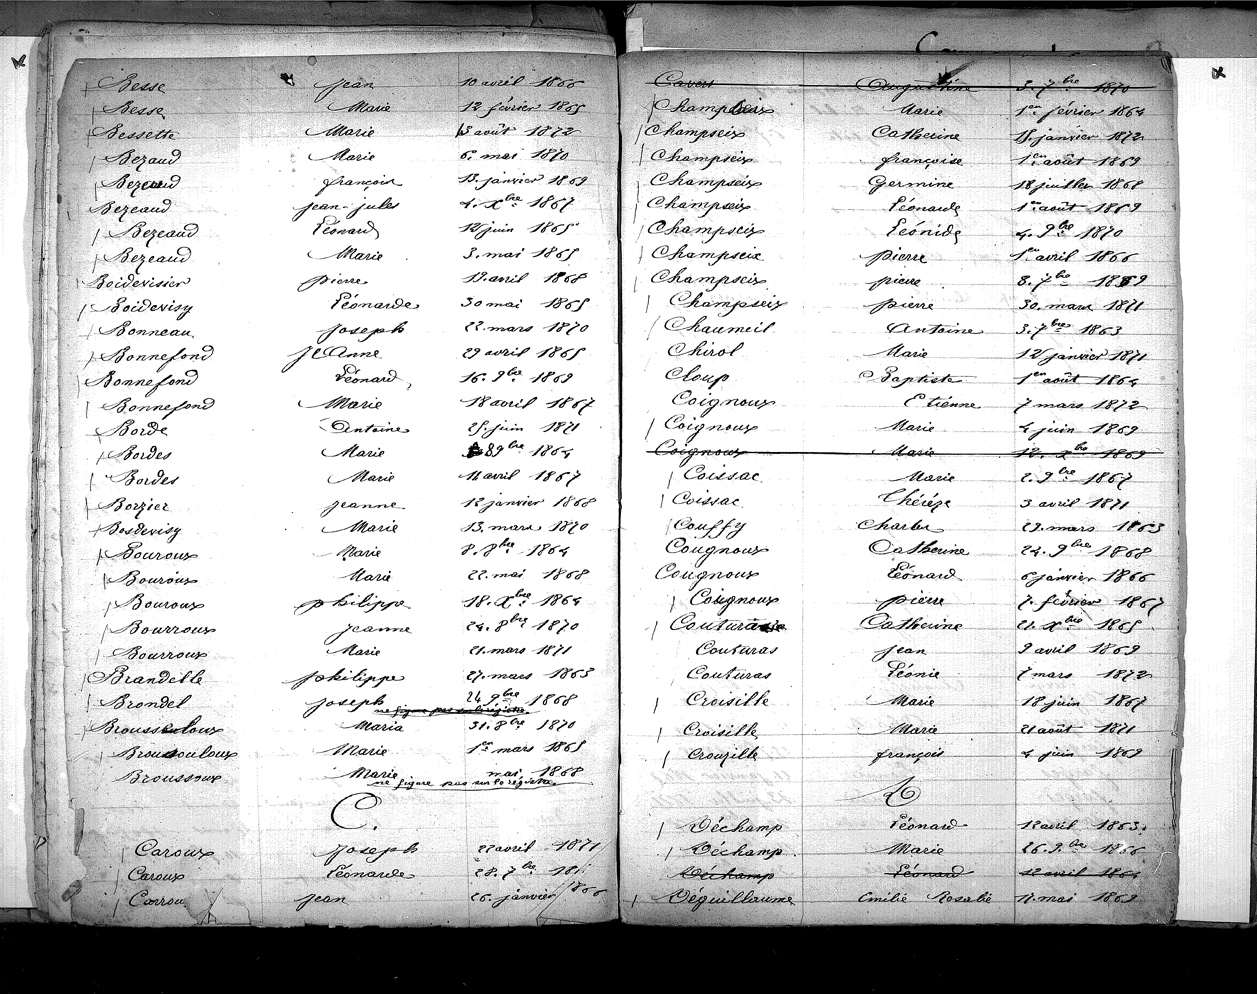 Besse Jean 10 avril 1866
Besse Marie 12 février 1865
Bessette Marie 3 août 1872
Bezaud Marie 6. mai 1870
Bezeaud françois 13. janvier 1869
Bezeaud jean-jules 4. Xbre 1867
Bezeaud Léonard 12 juin 1865
Bezeaud Marie 3. mai 1865
Boidevisier pierre 13. avril 1868
Boidevisy Léonarde 30 mai 1865
Bonneau joseph 22. mars 1870
Bonnefond Jeanne 29 avril 1865
Bonnefond Léonard, 16. 9bre 1869
Bonnefond Marie 18 avril 1867
Borde Antoine 25. juin 1871
Bordes Marie 8 9bre 1864
Bordes Marie 11 avril 1867
Borzier jeanne 12 janvier 1868
Bosdevisy Marie 13. mars 1870
Bouroux Marie 8. 8bre 1864
Bouroux Marie 22. mai 1868
Bouroux philippe 18. Xbre 1864
Bourroux jeanne 24. 8bre 1870
Bourroux Marie 21. mars 1871
Brandelle philippe 27. mars 1863
Brondel joseph 24 9bre 1868
ne figure pas sur le registre.
Brousseloux Maria 31. 8bre 1870
Broussouloux Marie 1er mars 1865
Broussoux Marie mai 1868
ne figure pas sur le registre.
C.
Caroux joseph 22 avril 1871
Caroux Léonarde 28. 7bre 18
Carrou jean 26. janvier 1866
Cavert Augustine 3. 7bre 1870
Champseix Marie 1er février 1864
Champseix Catherine 15. janvier 1872
Champseix françoise 1er août 1869
Champseix Germine 18 juillet 1868
Champseix Léonarde 1er août 1869
Champseix Léonide 4. 9bre 1870
Champseix pierre 1er avril 1866
Champseix pierre 8. 7bre 1869
Champseix pierre 30. mars 1871
Chaumeil Antoine 3. 7bre 1863
Chirol Marie 12 janvier 1871
Cloup Baptiste 1er août 1864
Coignoux Etienne 7 mars 1872
Coignoux Marie 4 juin 1869
Coignoux Marie 12. Xbre 1869
Coissac Marie 2. 9bre 1867
Coissac Thérèze 3 avril 1871
Couffy Charles 23. mars 1863
Cougnoux Catherine 24. 9bre 1868
Cougnoux Léonard 6 janvier 1866
Cougnoux pierre 7. février 1867
Couturas Catherine 21. Xbre 1865
Couturas jean 9 avril 1869
Couturas Léonie 7 mars 1872
Croisille Marie 18 juin 1867
Croisille Marie 21 août 1871
Crouzille françois 4 juin 1869
D
Déchamp Léonard 12 avril 1863.
Déchamp Marie 26. 9bre 1866
Déchamp Léonard 12 avril 1864
Déguillaume Emilie Rosalie 17. mai 1869